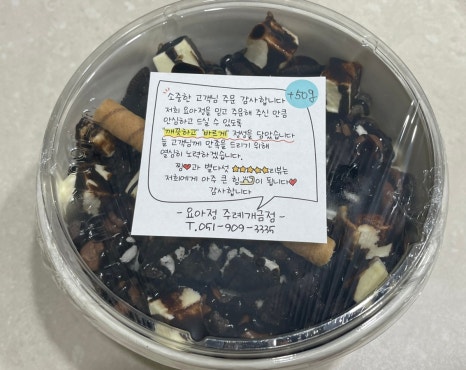 +50g
"소중한 고객님 주문 감사합니다
저희 요아정을 믿고 주문해 주신 만큼
안심하고 드실 수 있도록
"깨끗하고" "바르게" 정성을 담았습니다
늘 고객님께 만족을 드리기 위해
열심히 노력하겠습니다.
찜♥과 별다섯 ★★★★★리뷰는
저희에게 아주 큰 힘이 됩니다♥
감사합니다
- 요아정 주례개금점 -
T.051-909-3335